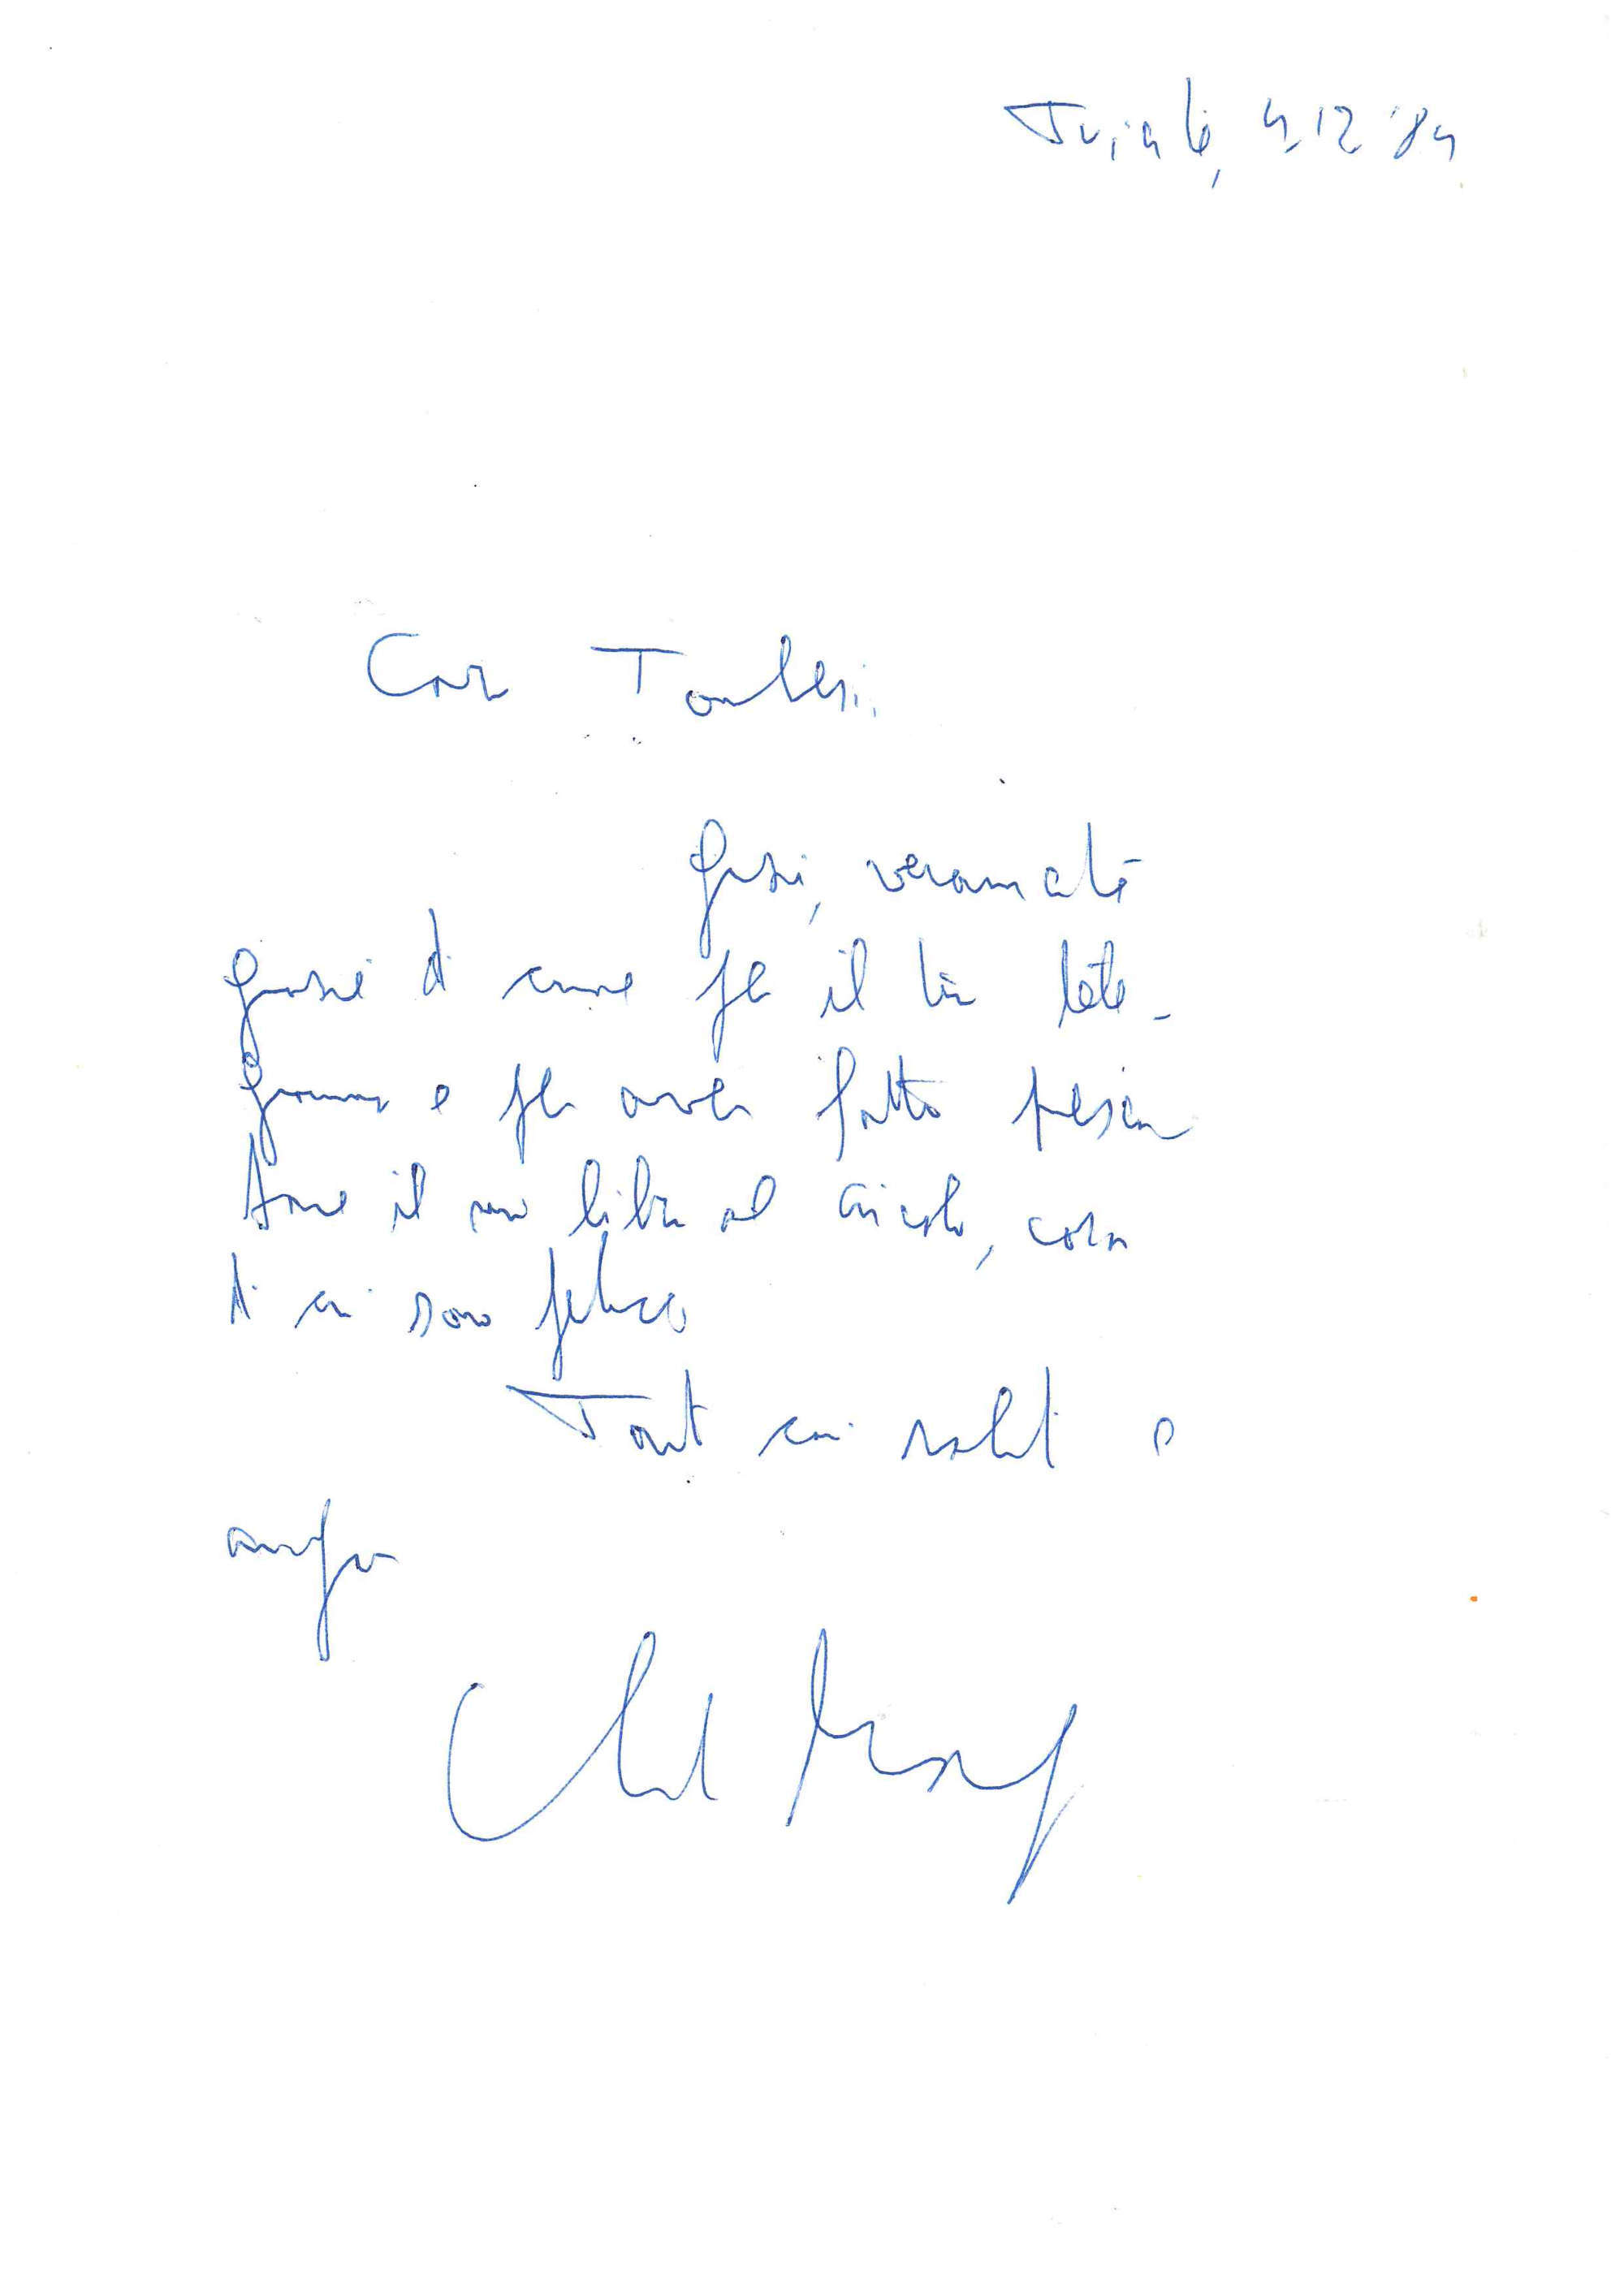 Trieste, 4.12.'84
Caro Tonlesi,
Grazie, veramente
grazie di cuore per il tuo tele-
gramma e per aver fatto presen
tare il mio libro al Circolo, cosa
di cui sono felice
Tanti cari saluti e
auguri